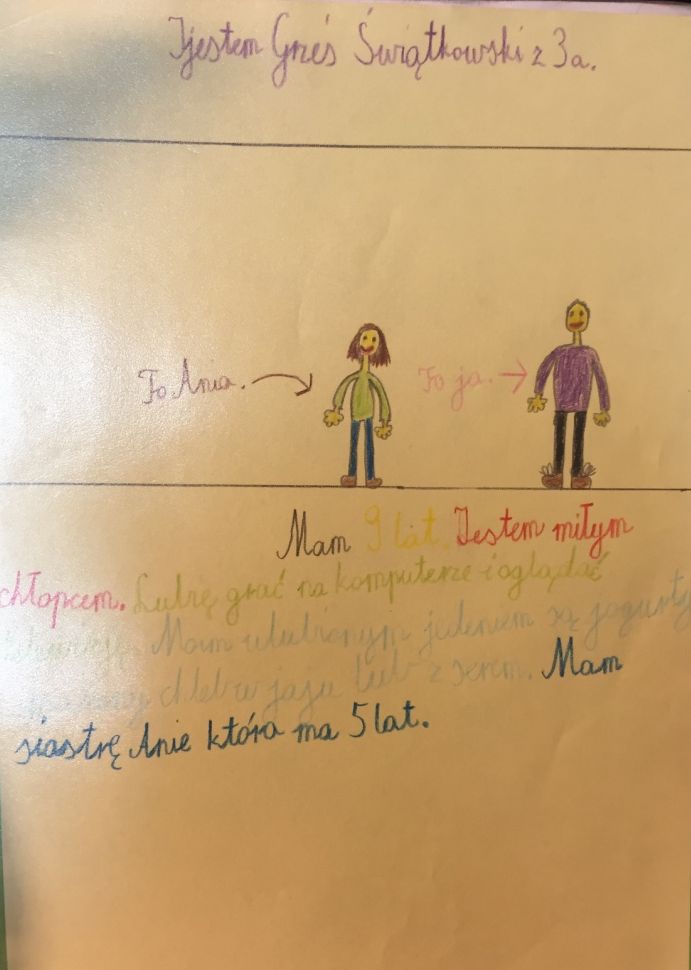 Jestem Grześ Świątkowski z 3a.
To Ania.
To ja.
Mam 9 lat. Jestem miłym
chłopcem. Lubię grać na komputerze i oglądać
Moim ulubionym jedeniem są jogurty
chleb w jaju lub z serem. Mam
siastrę Anie która ma 5 lat.